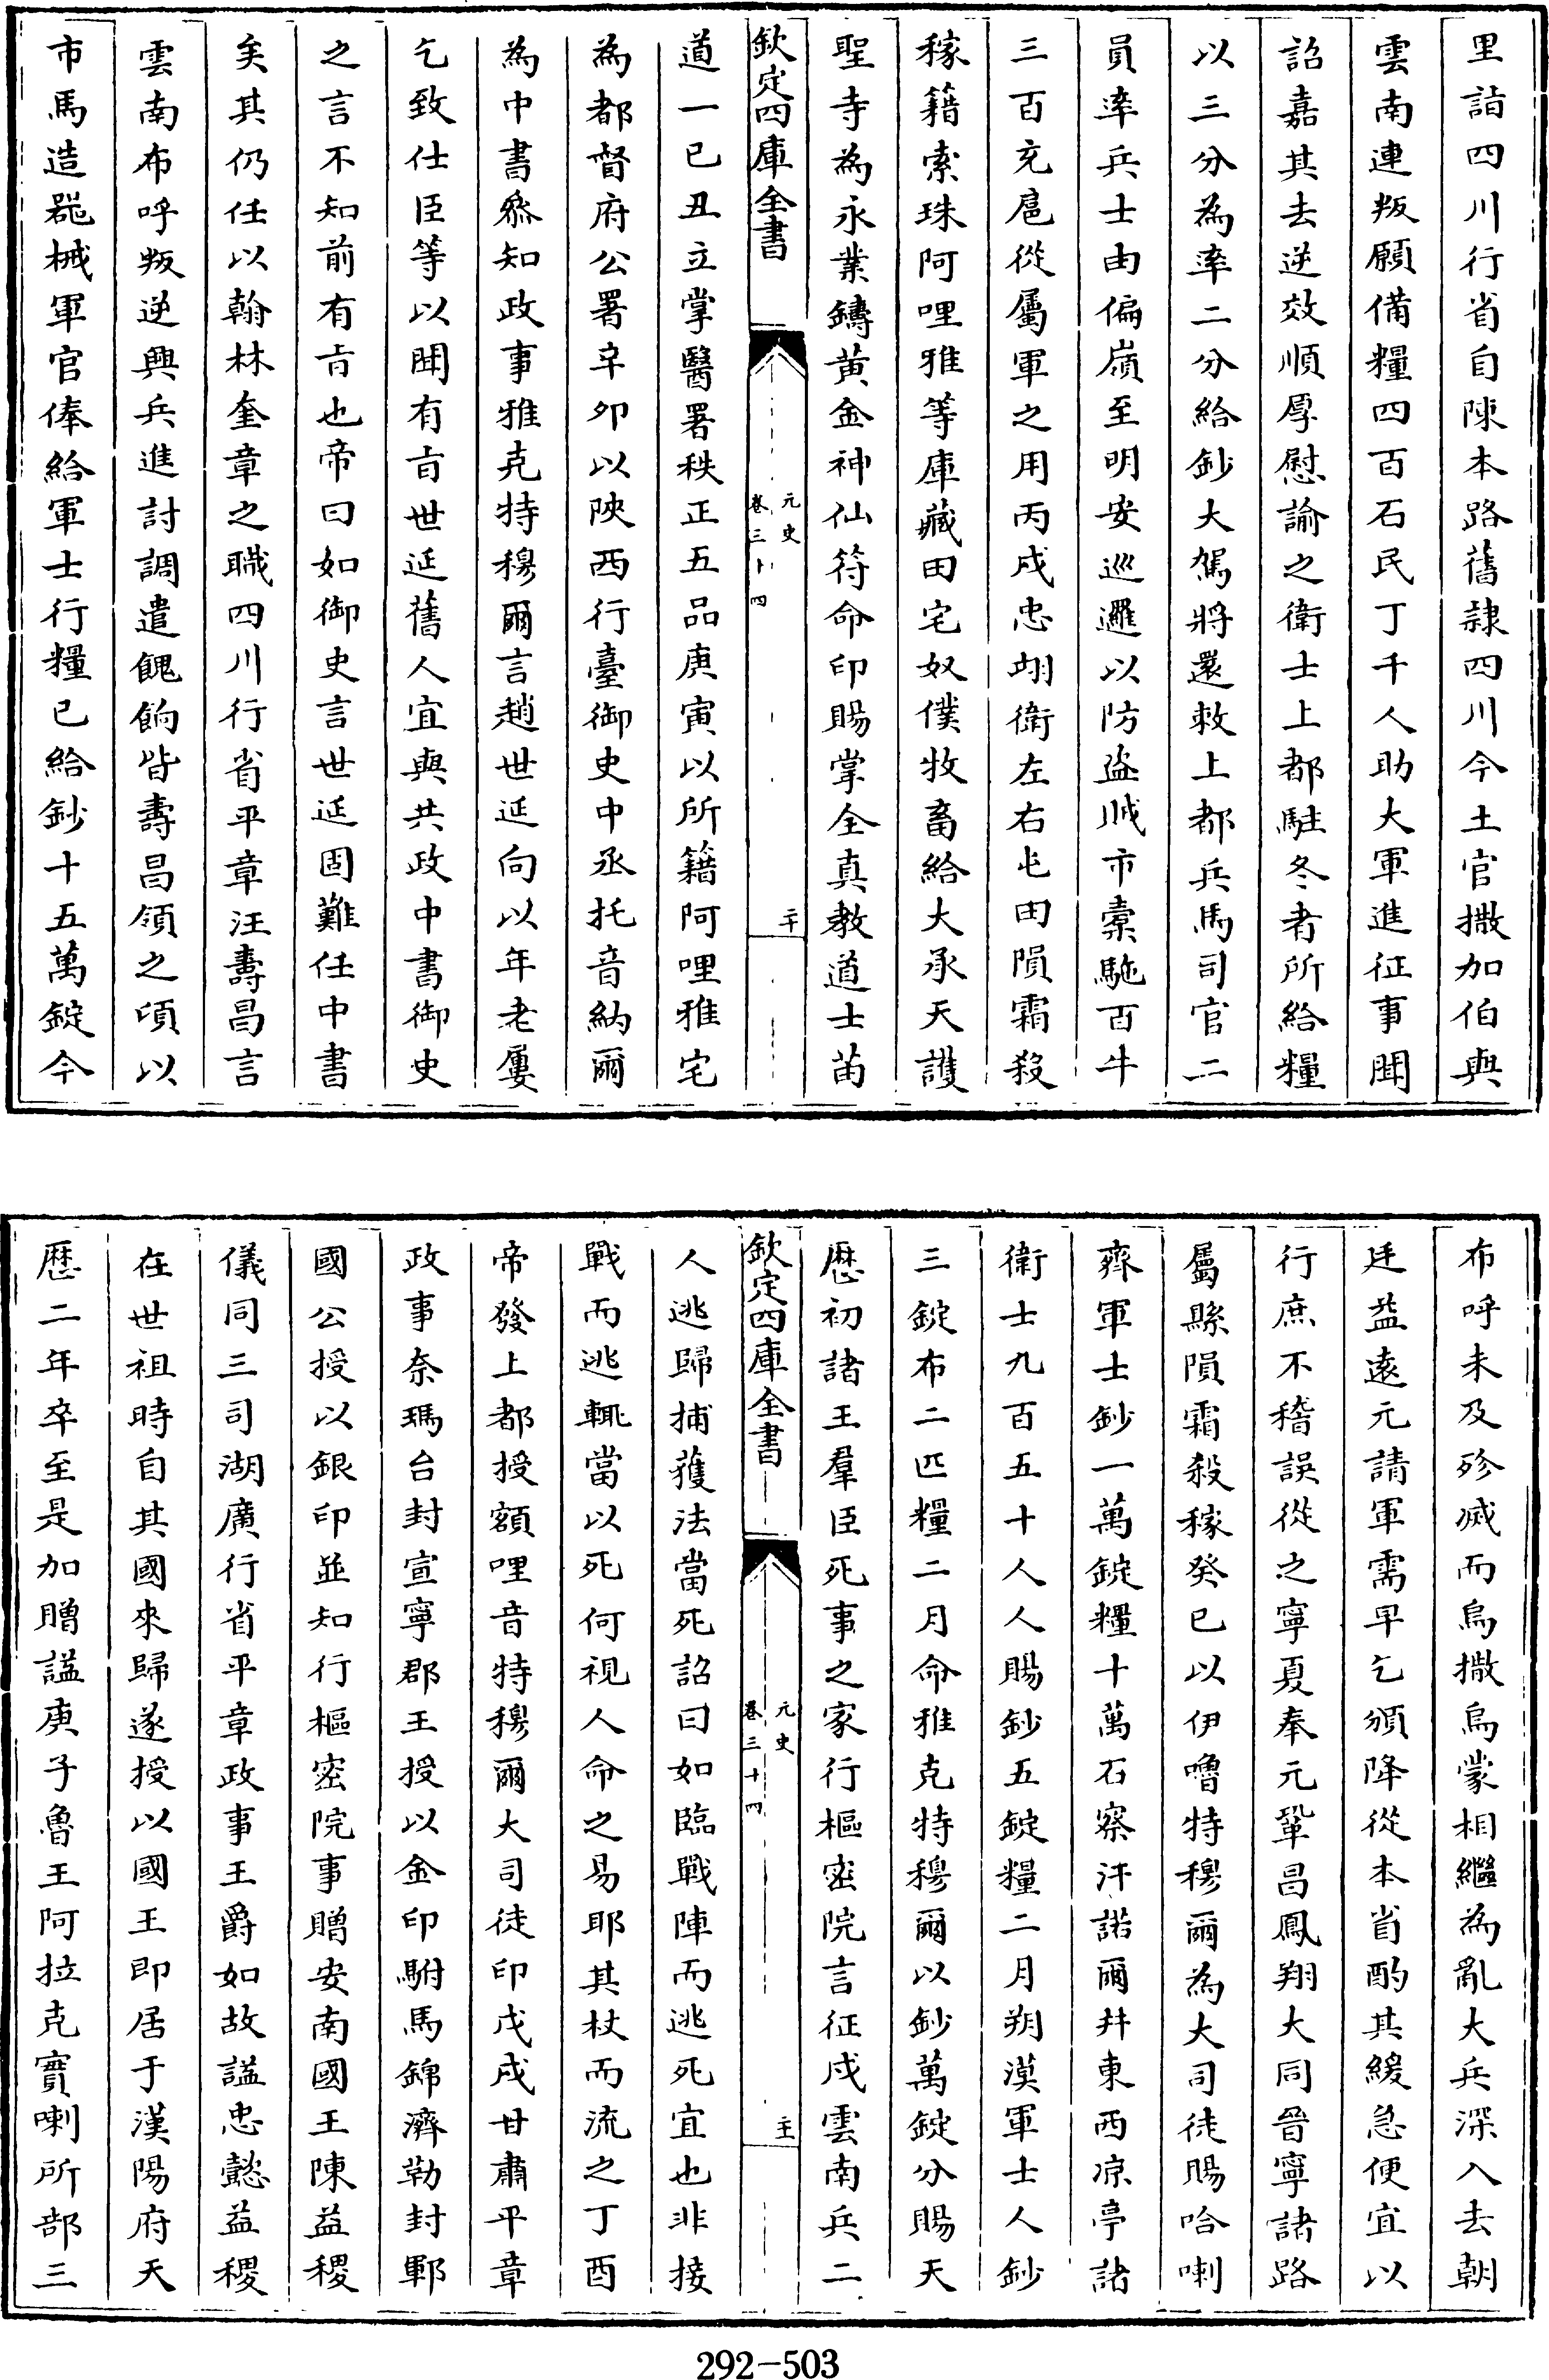 里詣四川行省自陳本路舊隷四川今土官撒加伯與
雲南連叛願備糧四百石民丁千人助大軍進征事聞
詔嘉其去逆效順厚慰諭之衛士上都駐冬者所給糧
以三分為率二分給鈔大駕將還敕上都兵馬司官二
員率兵士由偏嶺至明安巡邏以防盜賊市橐駞百牛
三百充扈從屬軍之用丙戌忠翊衛左右屯田隕霜殺
稼籍索珠阿哩雅等庫藏田宅奴僕牧畜給大承天護
聖寺為永業鑄黄金神仙符命印賜掌全真教道士苗
欽定四庫全書
元史
卷三十四
二十
道一已丑立掌醫署秩正五品庚寅以所籍阿哩雅宅
為都督府公署辛卯以陜西行臺御史中丞托音納爾
為中書叅知政事雅克特穆爾言趙世延向以年老屢
乞致仕臣等以聞有㫖世延舊人宜與共政中書御史
之言不知前有㫖也帝曰如御史言世延固難任中書
矣其仍任以翰林奎章之職四川行省平章汪壽昌言
雲南布呼叛逆興兵進討調遣餽餉皆壽昌領之頃以
市馬造器械軍官俸給軍士行糧已給鈔十五萬錠今
布呼未及殄滅而烏撒烏蒙相繼為亂大兵深入去朝
廷益遠元請軍需早乞頒降從本省酌其緩急便宜以
行庶不稽誤從之寧夏奉元鞏昌鳳翔大同晉寧諸路
屬縣隕霜殺稼癸已以伊嚕特穆爾為大司徒賜哈喇
齊軍士鈔一萬錠糧十萬石察汗諾爾井東西凉亭諸
衛士九百五十人人賜鈔五錠糧二月朔漠軍士人鈔
三錠布二匹糧二月命雅克特穆爾以鈔萬錠分賜天
歴初諸王羣臣死事之家行樞密院言征戍雲南兵二
欽定四庫全書
元史
卷三十四
主
人逃歸捕獲法當死詔曰如臨戰陣而逃死宜也非接
戰而逃輒當以死何視人命之易耶其杖而流之丁酉
帝發上都授額哩音特穆爾大司徒印戊戌甘肅平章
政事奈瑪台封宣寧郡王授以金印駙馬錦濟勒封鄆
國公授以銀印並知行樞密院事贈安南國王陳益稷
儀同三司湖廣行省平章政事王爵如故謚忠懿益稷
在世祖時自其國來歸遂授以國王即居于漢陽府天
歴二年卒至是加贈謚庚子魯王阿拉克寶喇所部三
292-503